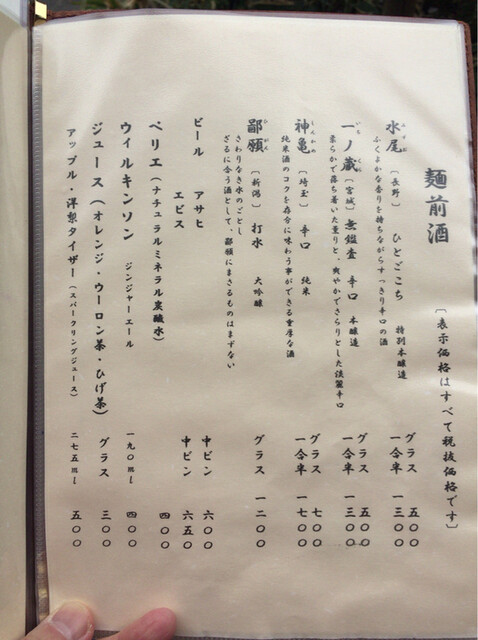 〔表示価格はすべて税抜価格です〕
麺前酒
水尾 〔長野〕 ひとごこち 特別本醸造
みずお
ふくよかな香りを持ちながらすっきり辛口の酒
グラス 五〇〇
一合半 一三〇〇
一ノ蔵 〔宮城〕 無鑑査 辛口 本醸造
いち くら
柔らかで落ち着いた薫りと、爽やかでさらりとした淡麗辛口
グラス 五〇〇
一合半 一三〇〇
神亀 〔埼玉〕 辛口 純米
しんかめ
純米酒のコクを存分に味わう事ができる重厚な酒
グラス 七〇〇
一合半 一七〇〇
鄙願 〔新潟〕 打水 大吟醸
ひがん
さわりなき水のごとし
ざるに合う酒として、鄙願にまさるものはまずない
グラス 一二〇〇
ビール アサヒ 中ビン 六〇〇
エビス 中ビン 六五〇
ペリエ（ナチュラルミネラル炭酸水） 四〇〇
ウィルキンソン ジンジャーエール 一九〇ml 四〇〇
ジュース（オレンジ・ウーロン茶・ひげ茶） グラス 三〇〇
アップル・洋梨タイザー（スパークリングジュース） 二七五ml 五〇〇